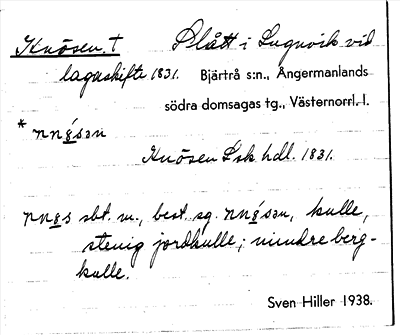 Knösen † Slått i Lugnvik vid
lagaskifte 1831. Bjärtrå s:n., Ångermanlands
södra domsagas tg., Västernorrl. l.
Knösen Lsk hdl. 1831.
sbt. m., best. sg. kulle,
stenig jordkulle; mindre berg-
kulle.
Sven Hiller 1938.